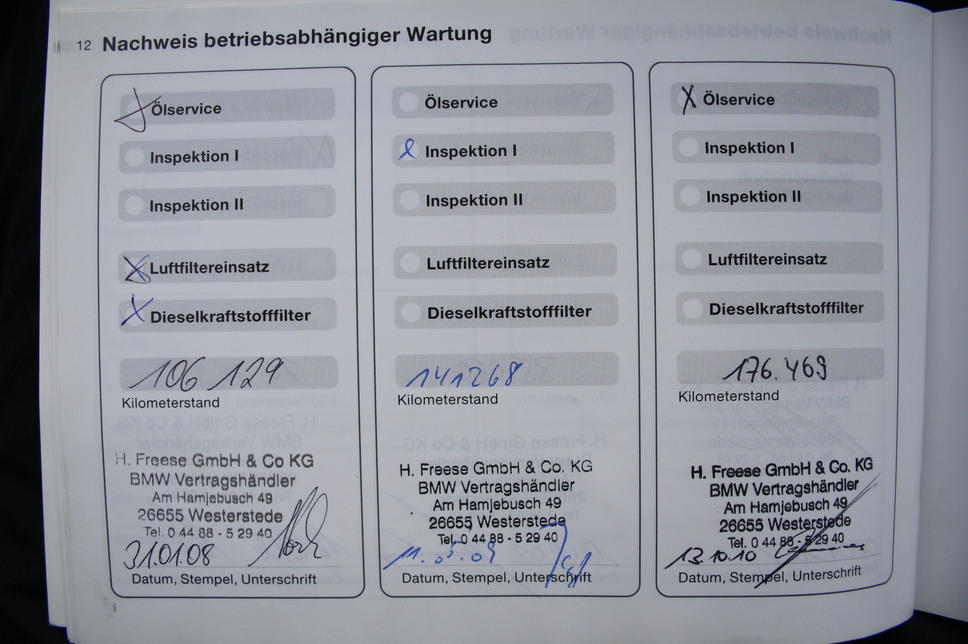 12 Nachweis betriebsabhängiger Wartung
Ölservice
Inspektion I
Inspektion II
Luftfiltereinsatz
Dieselkraftstofffilter
106 129
Kilometerstand
H. Freese GmbH & Co KG
BMW Vertragshändler
Am Hamjebusch 49
26655 Westerstede
Tel. 0 44 88 - 5 29 40
31.01.08
Datum, Stempel, Unterschrift
Ölservice
Inspektion I
Inspektion II
Luftfiltereinsatz
Dieselkraftstofffilter
141268
Kilometerstand
H. Freese GmbH & Co. KG
BMW Vertragshändler
Am Hamjebusch 49
26655 Westerstede
Tel. 0 44 88 - 5 29 40
11.05.09
Datum, Stempel, Unterschrift
X Ölservice
Inspektion I
Inspektion II
Luftfiltereinsatz
Dieselkraftstofffilter
176.469
Kilometerstand
H. Freese GmbH & Co. KG
BMW Vertragshändler
Am Hamjebusch 49
26655 Westerstede
Tel. 0 44 88 - 5 29 40
13.10.10
Datum, Stempel, Unterschrift